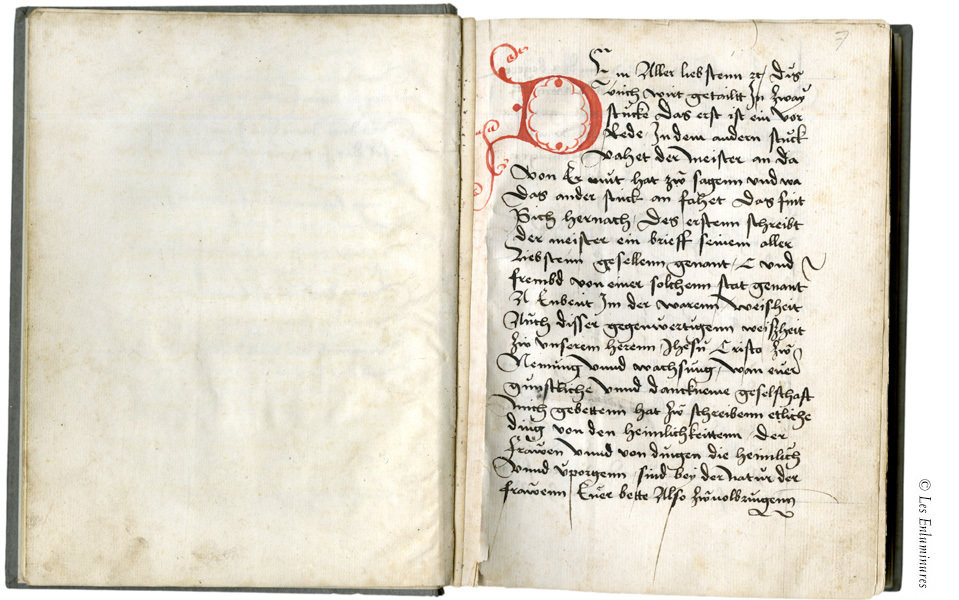 7
Dem Aller liebstenn ꝛc / Dis
buch wirt getailtt Jn zway
stucke Das erst ist ein vor
Rede Jn dem andern stuck
vahet der meister an da
von Er mut hat zw sagenn vnd wa
das ander stuck an fahet Das fint
Sich hernach / Des erstenn schreibt
der meister ein brieff seinem aller
Liebstenn gesellenn genant / C vnd
frembd von einer solchenn stat genant
A Enbeut Jm der warenn weisheit
Auch disser gegenwertigenn weißheit
zw vnserem herenn Jhesu Cristo zw
Nemung vnnd wachsung / wan euer
gunstliche vnnd danckneme geselschaft
mich gebettenn hat zw schreibenn etliche
ding von den heimlichkeittenn der
frawen vnnd von dingen die heimlich
vnnd vporgenn sind bey der natur der
frawenn Euer bette Also zwuolbringenn
© Les Enluminures